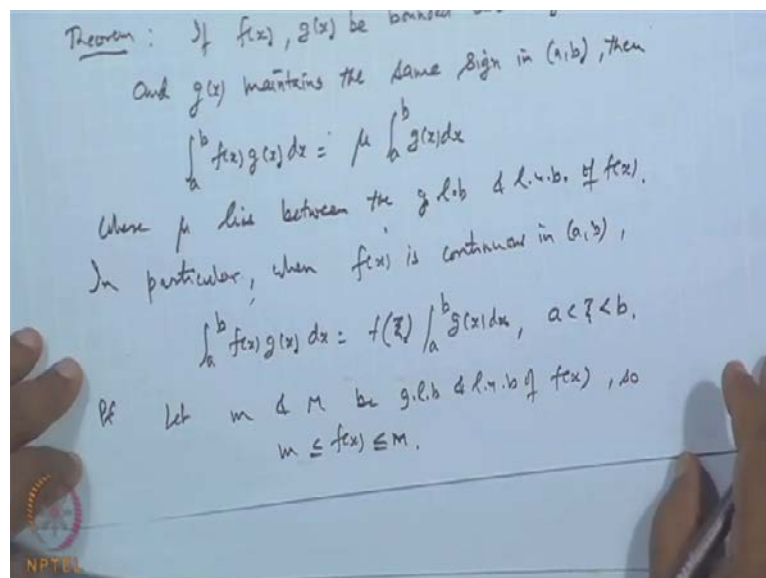 Theorem : If f(x), g(x) be bounded
and g(x) maintains the same sign in (a,b), then
∫_a^b f(x) g(x) dx = μ ∫_a^b g(x) dx
where μ lies between the g l.b & l.u.b. of f(x).
In particular, when f(x) is continuous in (a,b),
∫_a^b f(x) g(x) dx = f(ξ) ∫_a^b g(x) dx, a < ξ < b.
Pf Let m & M be g.l.b & l.u.b of f(x), so
m ≤ f(x) ≤ M.
NPTEL